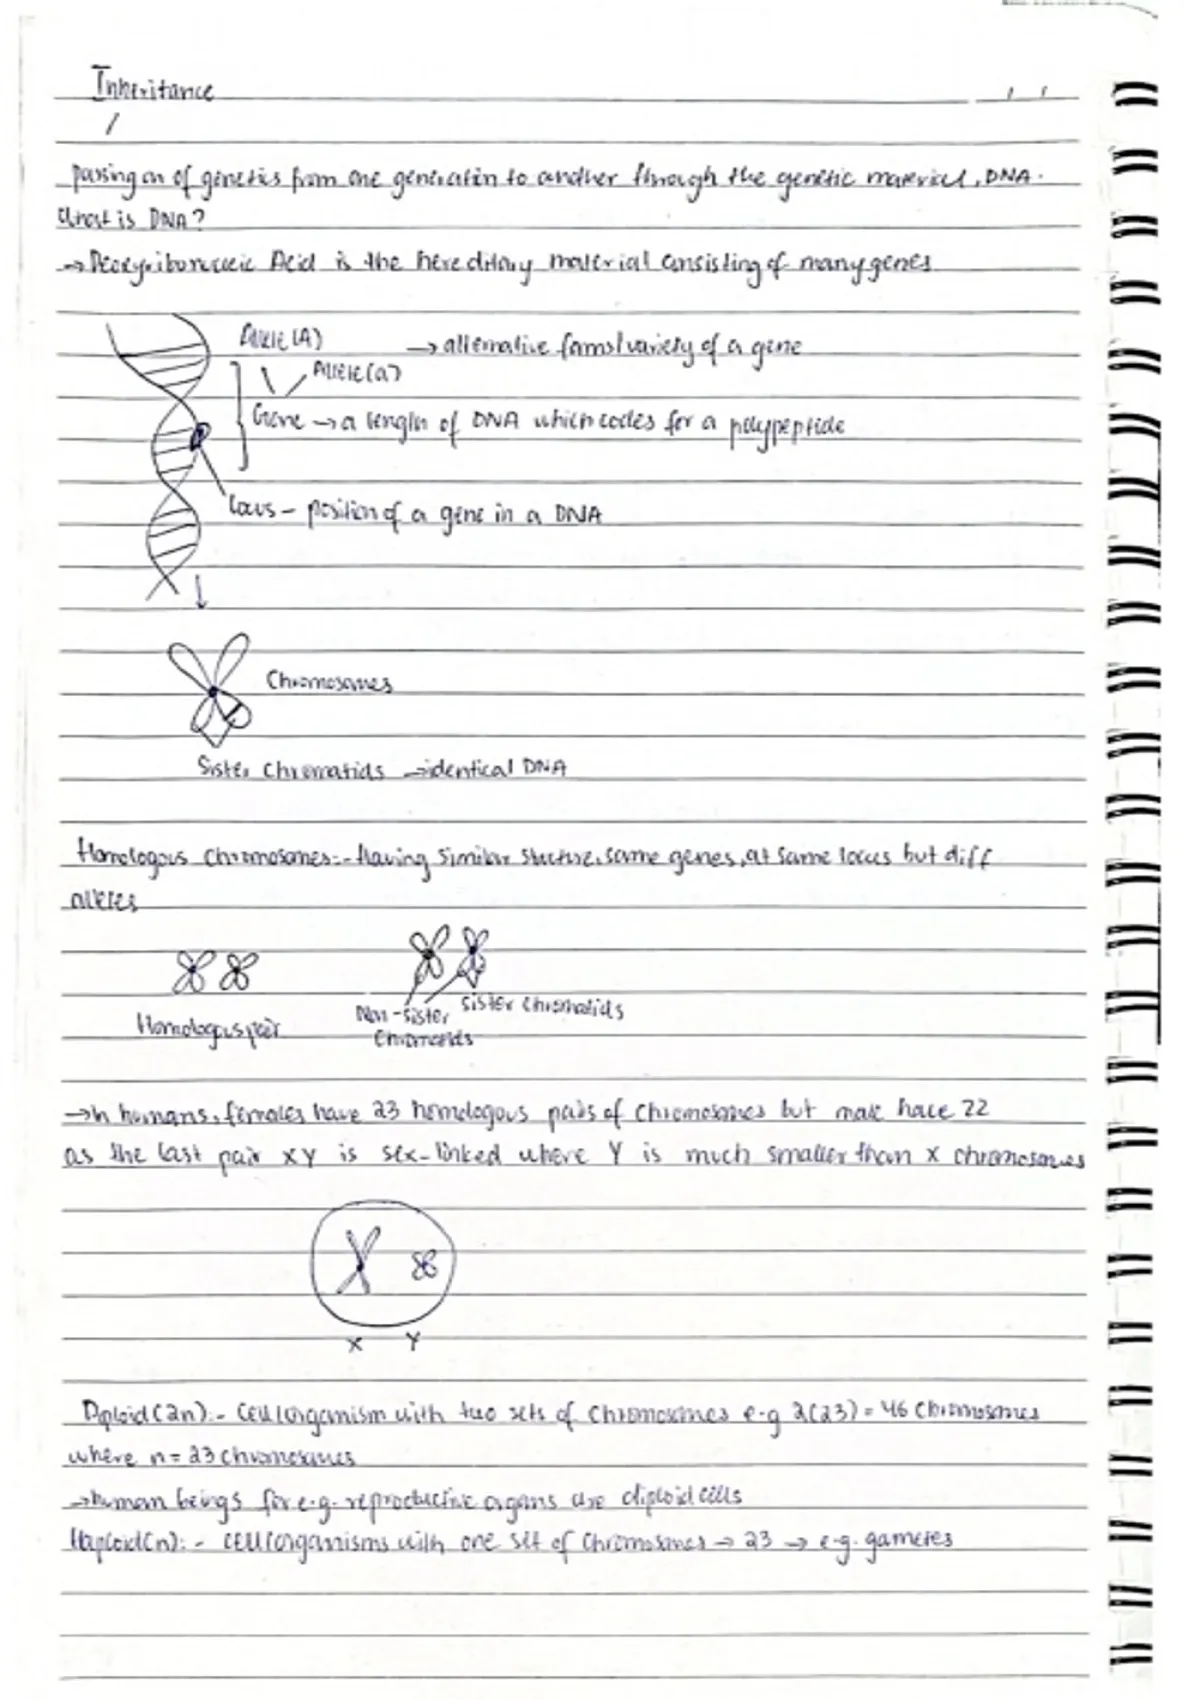 Inheritance
passing on of genetics from one generation to another through the genetic material, DNA.
What is DNA?
→ Deoxyribonucleic Acid is the hereditary material consisting of many genes
Allele (A) → alternative forms/variety of a gene
Allele (a)
Gene → a length of DNA which codes for a polypeptide
Locus - position of a gene in a DNA
Chromosomes
Sister Chromatids → identical DNA
Homologous chromosomes:- Having similar structure, same genes, at same locus but diff
alleles
Homologous pair
Non-sister
Chromatids
Sister chromatids
→ In humans, females have 23 homologous pairs of chromosomes but male have 22
as the last pair XY is sex-linked where Y is much smaller than X chromosomes
X Y
Diploid (2n):- Cell/organism with two sets of chromosomes e.g 2(23) = 46 Chromosomes
where n = 23 chromosomes
→ human beings for e.g. reproductive organs are diploid cells
Haploid (n):- cell/organisms with one set of chromosomes → 23 → e.g. gametes